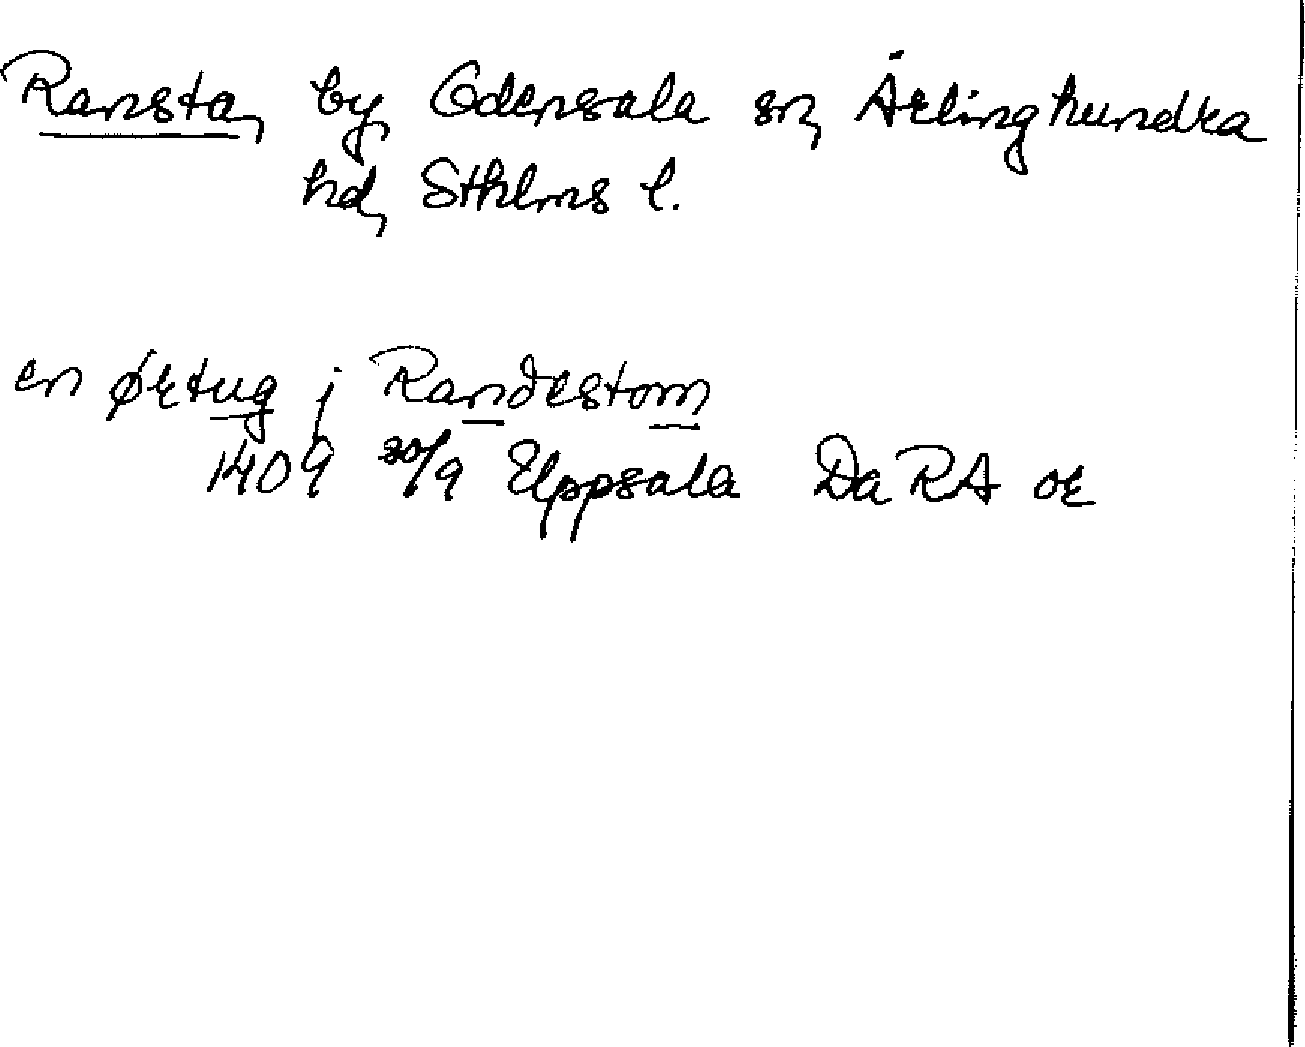 Ransta, by, Odensala sn, Ärlinghundra
hd, Sthlms l.
en ørtug j Randestom
1409 30/9 Uppsala Da RA or